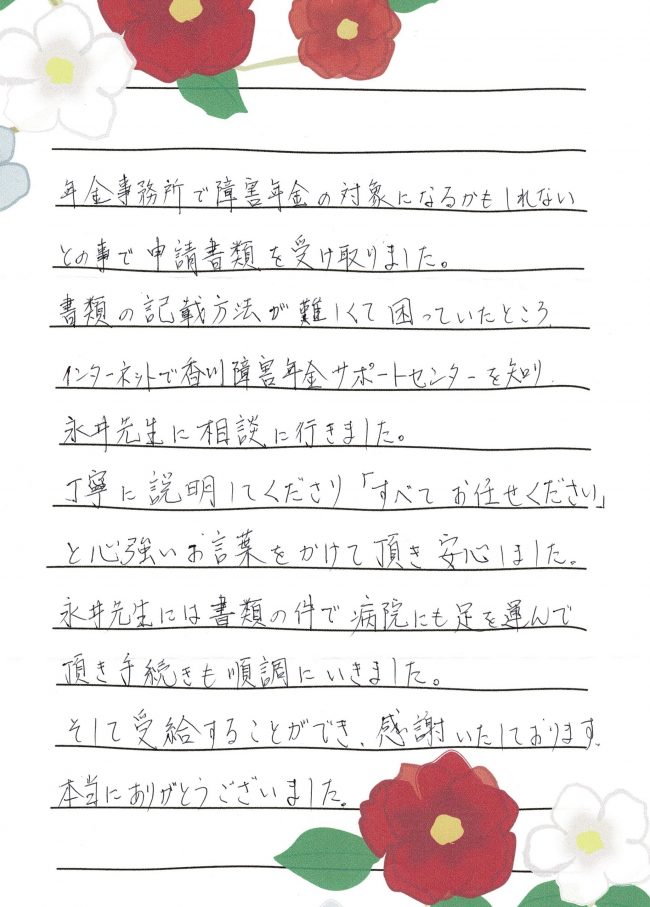 年金事務所で障害年金の対象になるかもしれない
との事で申請書類を受け取りました。
書類の記載方法が難しくて困っていたところ、
インターネットで香川障害年金サポートセンターを知り、
永井先生に相談に行きました。
丁寧に説明してくださり「すべてお任せください」
と心強いお言葉をかけて頂き安心しました。
永井先生には書類の件で病院にも足を運んで
頂き手続きも順調にいきました。
そして受給することができ、感謝いたしております。
本当にありがとうございました。